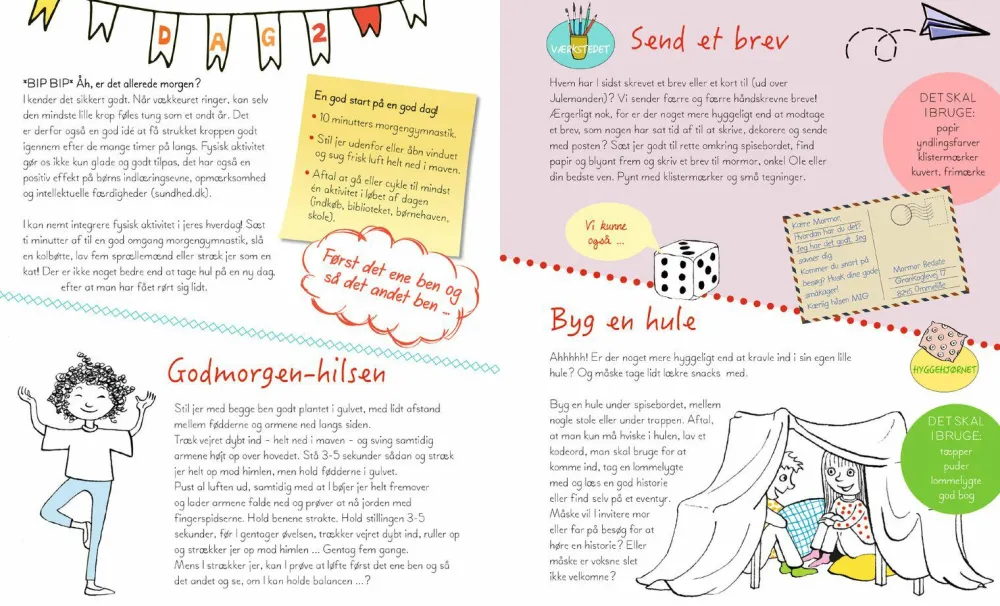 DAG 2
*BIP BIP* Åh, er det allerede morgen?
I kender det sikkert godt. Når vækkeuret ringer, kan selv
den mindste lille krop føles tung som et ondt år. Det
er derfor også en god idé at få strukket kroppen godt
igennem efter de mange timer på langs. Fysisk aktivitet
gør os ikke kun glade og godt tilpas, det har også en
positiv effekt på børns indlæringsevne, opmærksomhed
og intellektuelle færdigheder (sundhed.dk).
I kan nemt integrere fysisk aktivitet i jeres hverdag! Sæt
ti minutter af til en god omgang morgengymnastik, slå
en kolbøtte, lav fem sprællemænd eller stræk jer som en
kat! Der er ikke noget bedre end at tage hul på en ny dag,
efter at man har fået rørt sig lidt.
En god start på en god dag!
• 10 minutters morgengymnastik.
• Stil jer udenfor eller åbn vinduet
og sug frisk luft helt ned i maven.
• Aftal at gå eller cykle til mindst
én aktivitet i løbet af dagen
(indkøb, biblioteket, børnehaven,
skole).
Først det ene ben og
så det andet ben ...
Godmorgen-hilsen
Stil jer med begge ben godt plantet i gulvet, med lidt afstand
mellem fødderne og armene ned langs siden.
Træk vejret dybt ind - helt ned i maven - og sving samtidig
armene højt op over hovedet. Stå 3-5 sekunder sådan og stræk
jer helt op mod himlen, men hold fødderne i gulvet.
Pust al luften ud, samtidig med at I bøjer jer helt fremover
og lader armene falde ned og prøver at nå jorden med
fingerspidserne. Hold benene strakte. Hold stillingen 3-5
sekunder, før I gentager øvelsen, trækker vejret dybt ind, ruller op
og strækker jer op mod himlen ... Gentag fem gange.
Mens I strækker jer, kan I prøve at løfte først det ene ben og så
det andet og se, om I kan holde balancen ...?
VÆRKSTEDET
Send et brev
Hvem har I sidst skrevet et brev eller et kort til (ud over
Julemanden)? Vi sender færre og færre håndskrevne breve!
Ærgerligt nok, for er der noget mere hyggeligt end at modtage
et brev, som nogen har sat tid af til at skrive, dekorere og sende
med posten? Sæt jer godt til rette omkring spisebordet, find
papir og blyant frem og skriv et brev til mormor, onkel Ole eller
din bedste ven. Pynt med klistermærker og små tegninger.
DET SKAL
I BRUGE:
papir
yndlingsfarver
klistermærker
kuvert, frimærke
Vi kunne
også ...
Kære Mormor
Hvordan har du det?
Jeg har det godt. Jeg
savner dig
Kommer du snart på
besøg? Husk dine gode
småkager!
Kærlig hilsen MIG
Mormor Bedste
Grankoglevej 17
8245 Drømmelille
Byg en hule
HYGGEHJØRNET
Ahhhhh! Er der noget mere hyggeligt end at kravle ind i sin egen lille
hule? Og måske tage lidt lækre snacks med.
Byg en hule under spisebordet, mellem
nogle stole eller under trappen. Aftal,
at man kun må hviske i hulen, lav et
kodeord, man skal bruge for at
komme ind, tag en lommelygte
med og læs en god historie
eller find selv på et eventyr.
Måske vil I invitere mor
eller far på besøg for at
høre en historie? Eller
måske er voksne slet
ikke velkomne?
DET SKAL
I BRUGE:
tæpper
puder
lommelygte
god bog